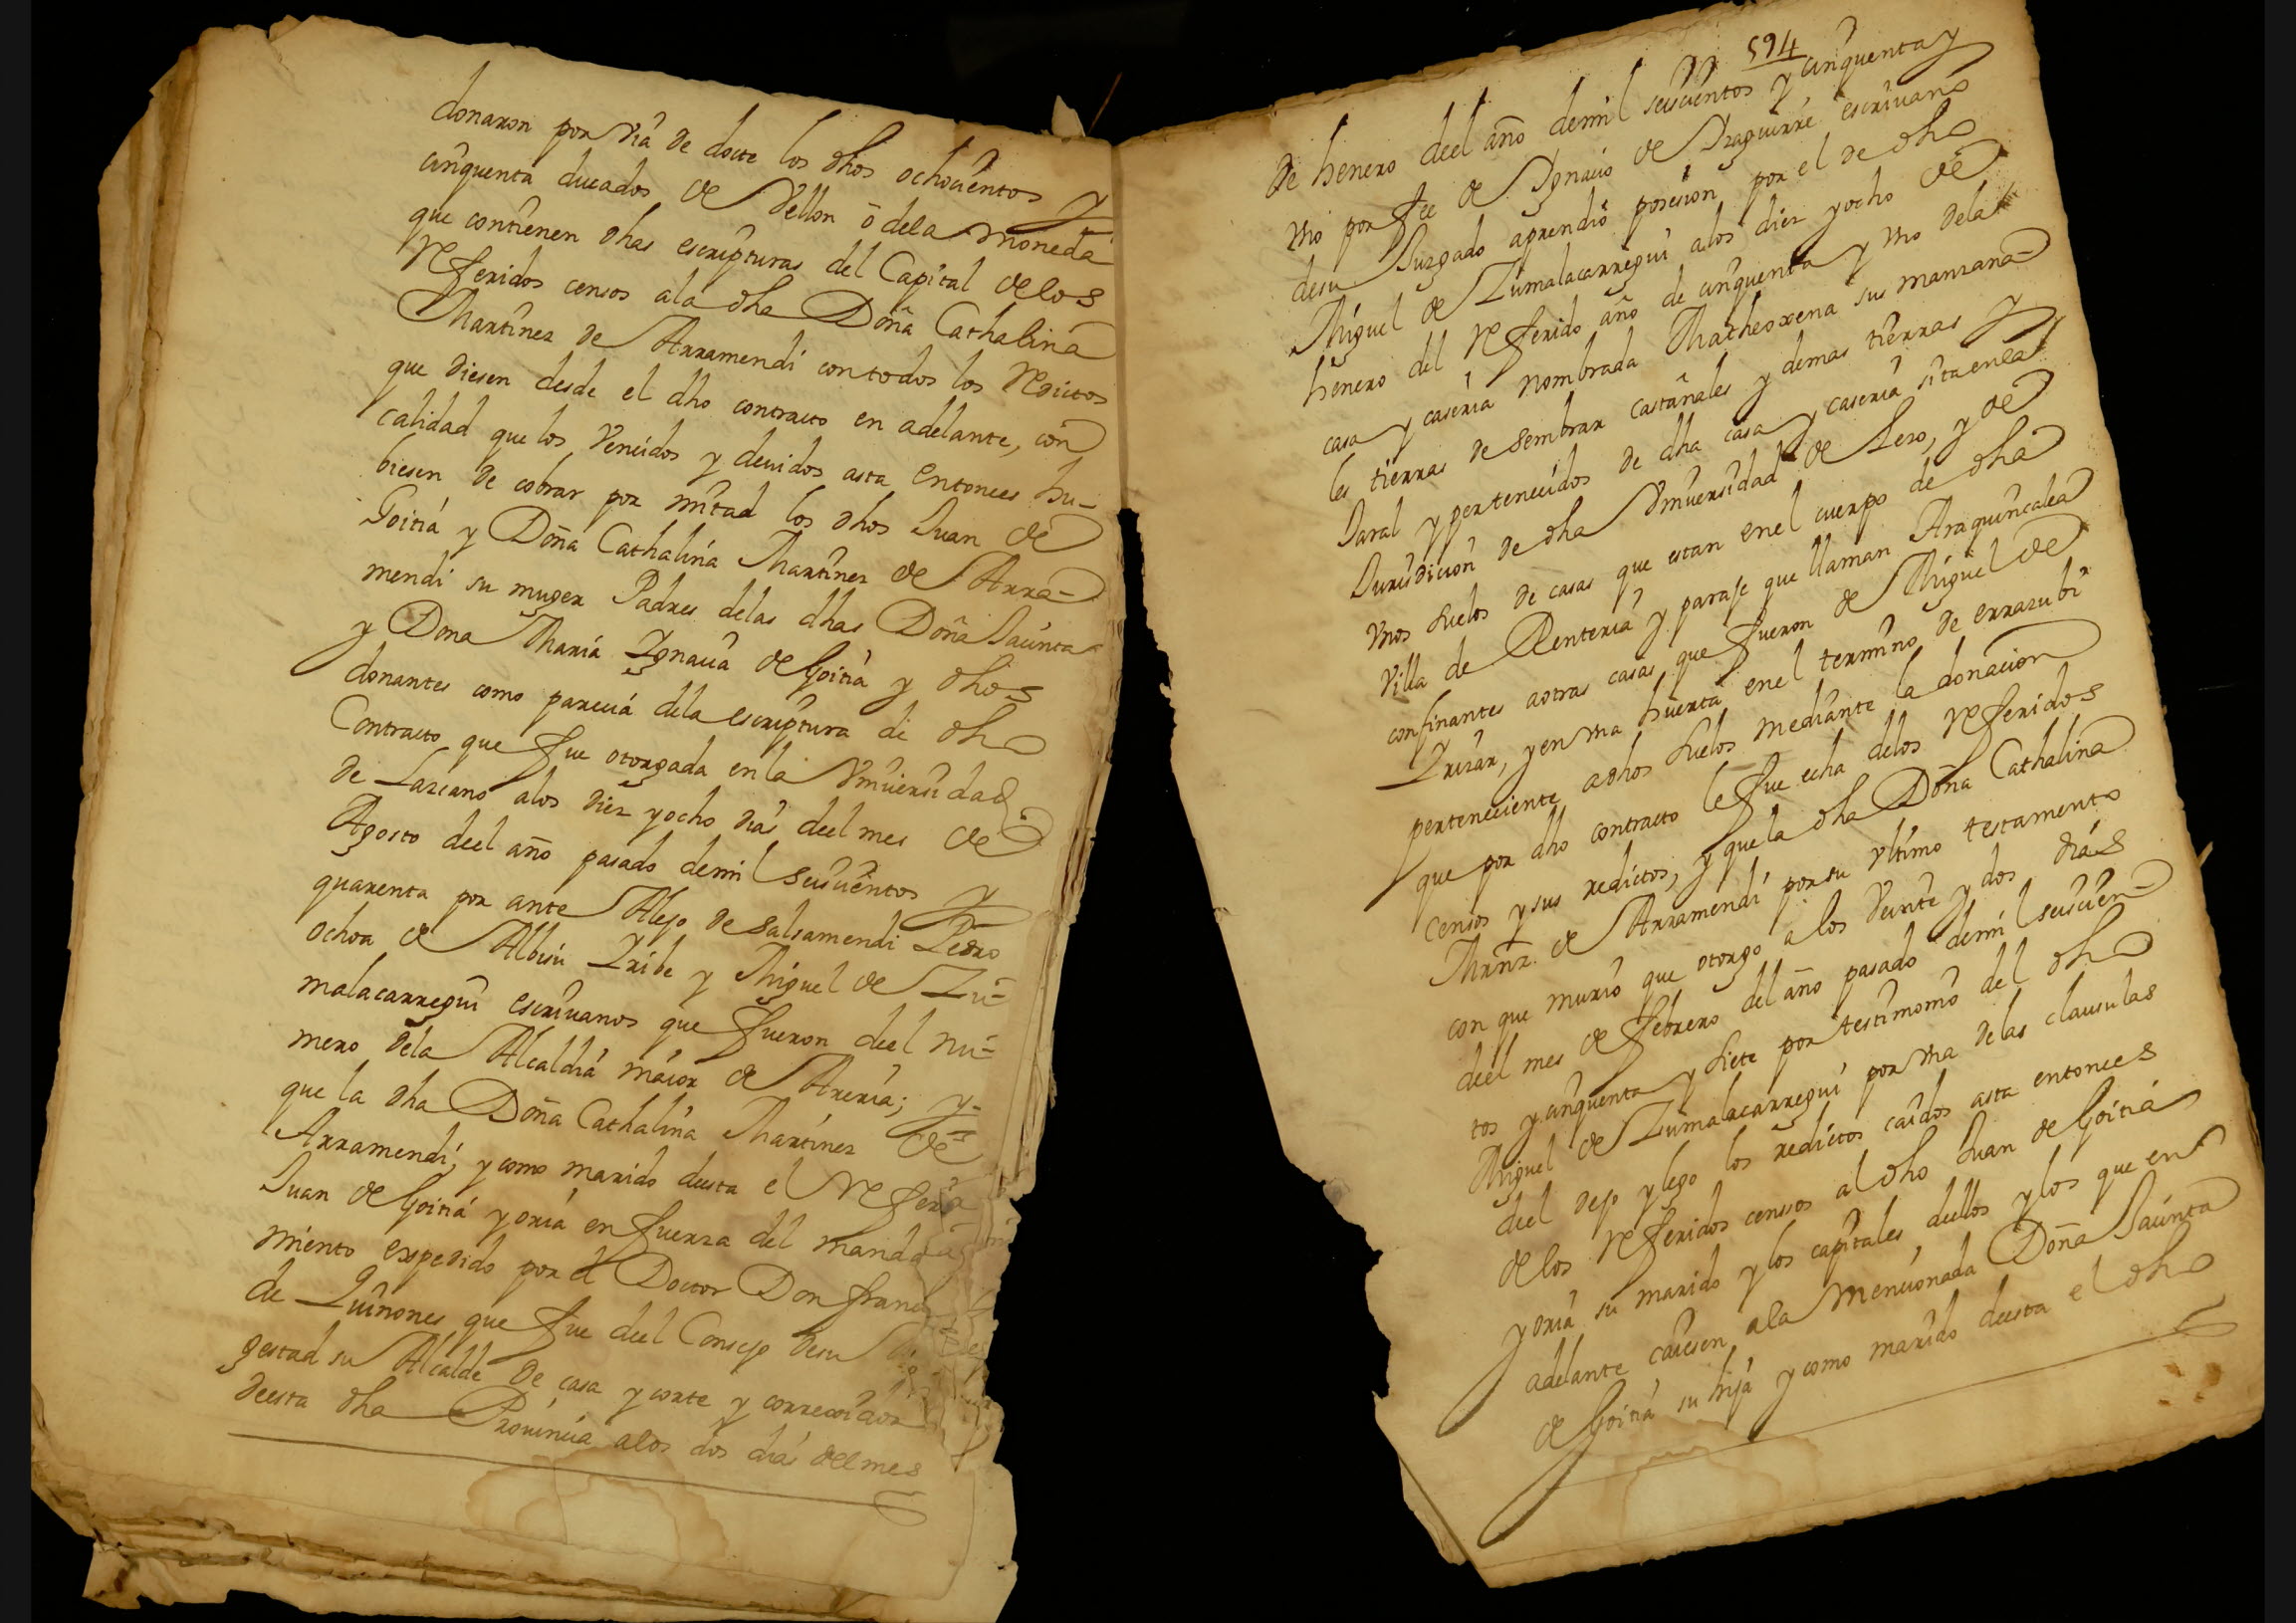 donaron por via de docte los dhos ochocientos y
cinquenta ducados de Vellon ō dela moneda
que contienen dhas escripturas del Capital delos
Referidos censos ala dha Doña Cathalina
Martinez de Arramendi con todos los Redictos
que diesen desde el dho contracto en adelante, con
calidad que los Vencidos y deuidos asta entonces hu-
biesen de cobrar por mitad los dhos Juan de
Goitia y Doña Cathalina Martinez de Arra-
mendi su muger Padres delas dhas Doña Jacinta
y Dona Maria Ignacia de Goitia y dhos
donantes como parecia dela escriptura de dho
Contracto que fue otorgada en la Vniuersidad
de Lazcano alos diez y ocho dias deel mes de
Agosto deel año pasado demil seiscientos y
quarenta por ante Alejo de Salsamendi Pedro
Ochoa de Albisu Iribe y Miguel de Zu=
malacarregui escriuanos que fueron deel nu=
mero dela Alcaldia maior de Areria; y=
que la dha Doña Cathalina Martinez de
Arramendi, y como marido deesta el Referi
Juan de Goitia y oria en fuerza del manda
miento expedido por el Doctor Don Fran
de Quiñones que fue deel Consejo desu
gestad su Alcalde de casa y corte y corregidor
deesta dha Prouincia alos dos dias deel mes
594
de henero deel año demil seiscientos y cinquenta y
vno por fee de Ignacio de Iraguirre escriuano
desu Juzgado aprendió posesion por el de dho
Miguel de Zumalacarregui alos diez y ocho de
henero del Referido año de cinquenta y vno dela
casa y caseria nombrada Matheoxena sus manzana-
les tierras de sembrar castañales y demas tierras y
Jaral y pertenecidos de dha casa y caseria sita en la
Jurisdicion de dha Vniuersidad de Lezo, y de
vnos suelos de casas que estan en el cuerpo de dha
Villa de Renteria y paraje que llaman Araquincalea
confinantes aotras casas que fueron de Miguel de
Irizar, y en vna huerta en el termino de errazubi
perteneciente adhos suelos mediante la donacion
que por dho contracto le fue echa delos referidos
censos y sus redictos, y que la dha Doña Cathalina
Mrnz. de Arramendi por su vltimo testamento
con que murio que otorgo a los Veinte y dos dias
deel mes de febrero del año pasado demil seiscien-
tos y cinquenta y siete por testimonio del dho
Miguel de Zumalacarregui por vna delas clausulas
deel dejo y lego los redictos caidos asta entonces
delos referidos censos al dho Juan de Goitia
y oria su marido y los capitales deellos y los que en
adelante caiesen ala mencionada Doña Jacinta
de Goitia su hija y como marido deesta el dho